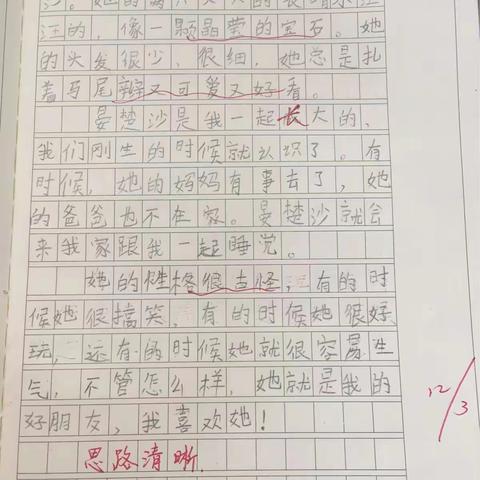 沙。她的
汪的，像一颗晶莹的宝石。她
的头发很少，很细，她总是扎
着马尾辫又可爱又好看。
晏楚沙是我一起长大的，
我们刚生的时候就认识了。有
时候，她的妈妈有事去了，她
的爸爸也不在家。晏楚沙就会
来我家跟我一起睡觉。
她的性格很古怪，有的时
候她很搞笑，有的时候她很好
玩，还有的时候她就很容易生
气，不管怎么样，她就是我的
好朋友，我喜欢她！
思路清晰.
12/3